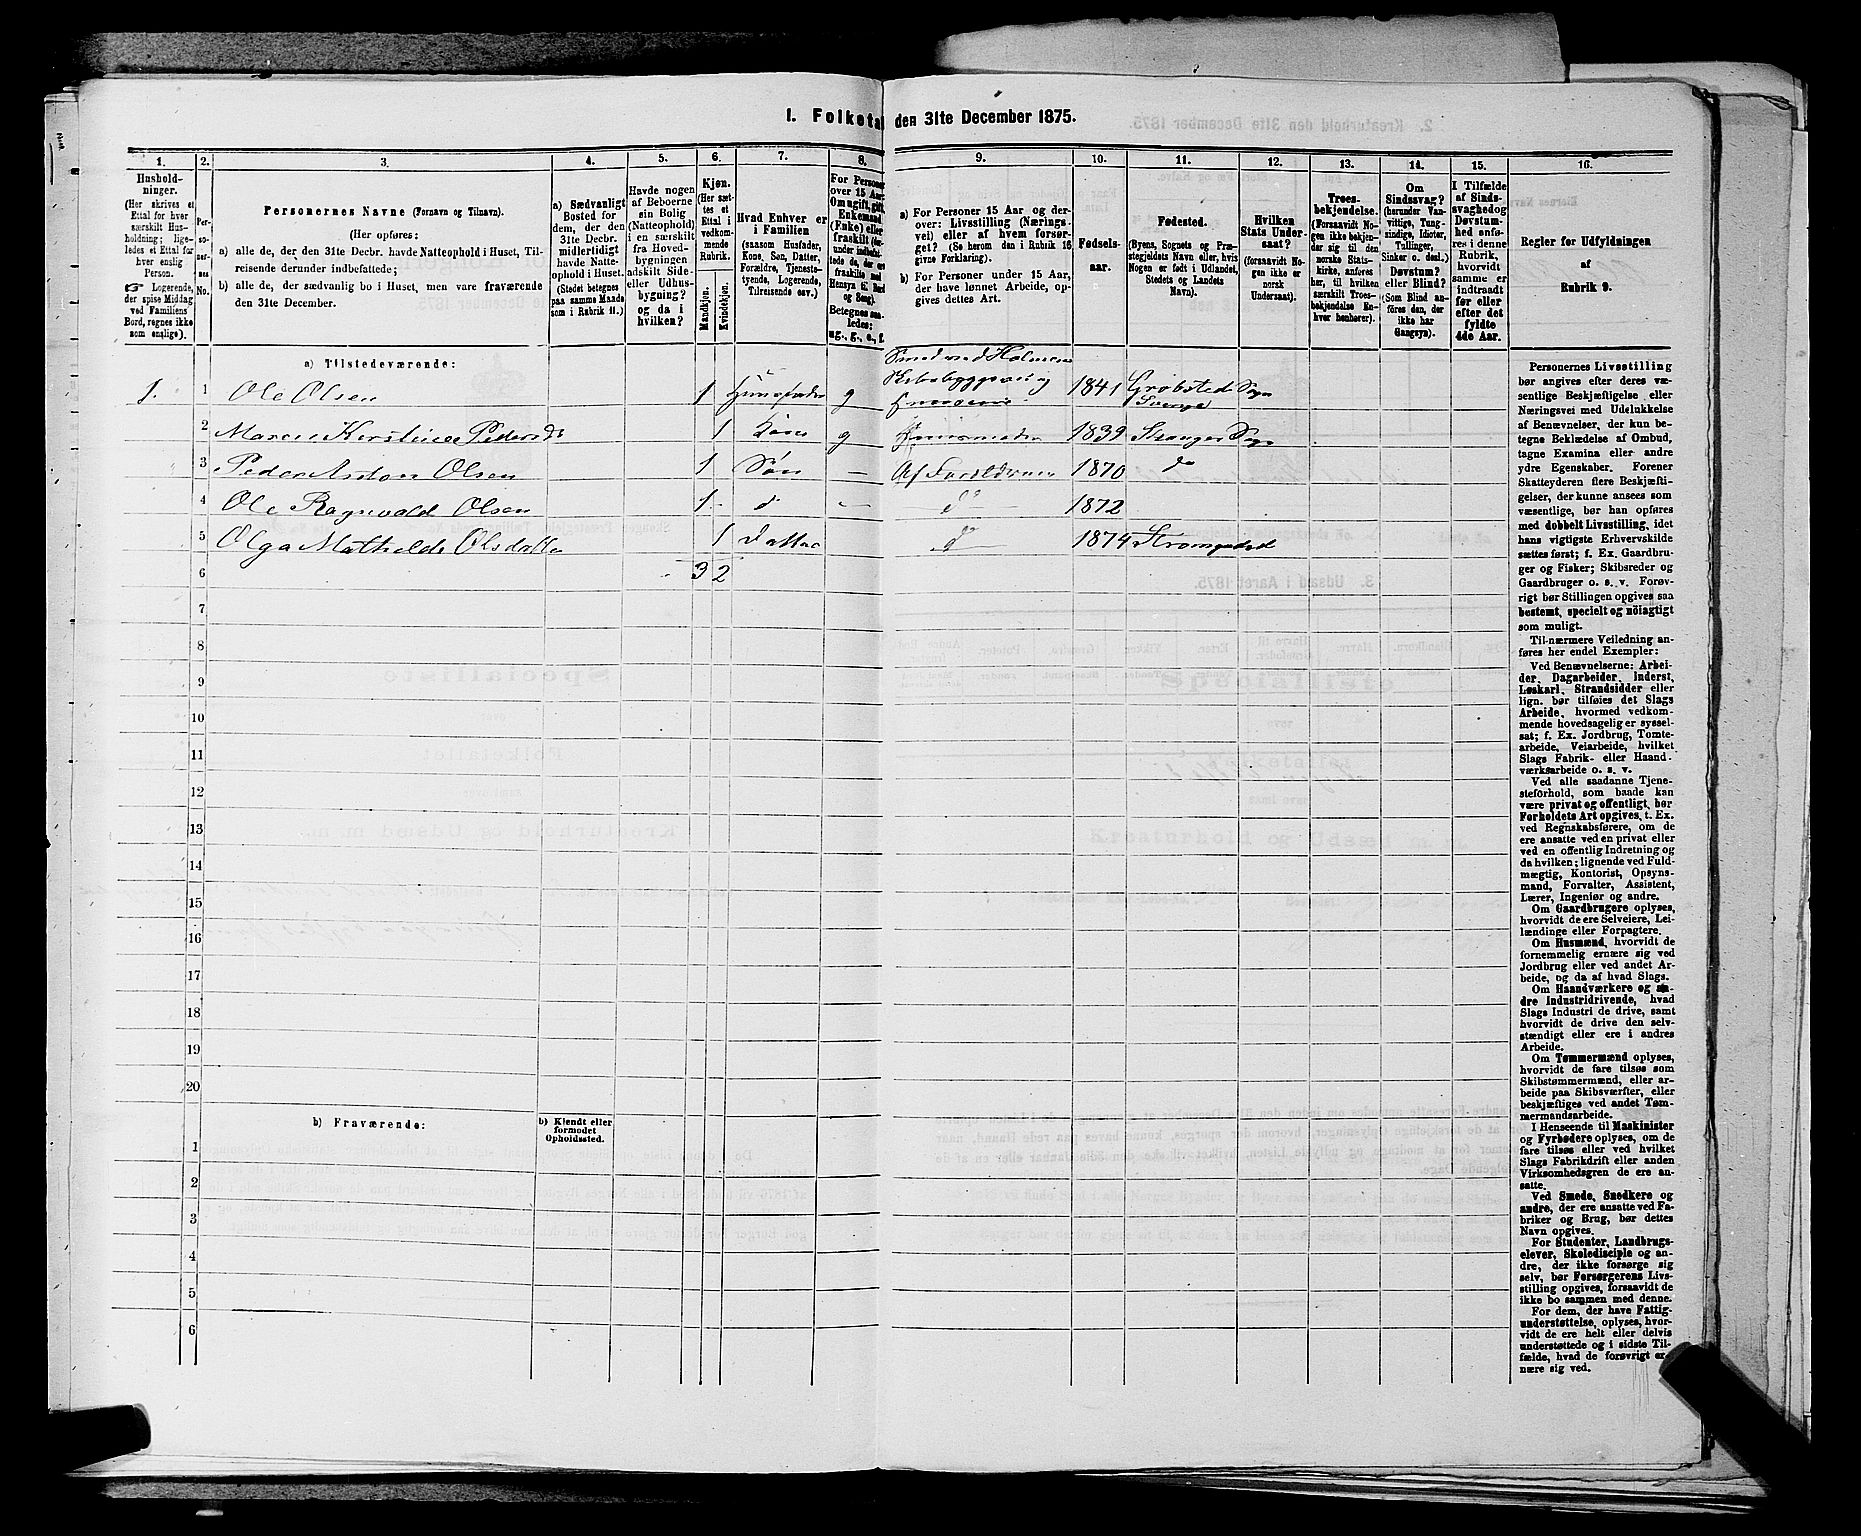 1. Folketal den 31te December 1875.
1. 2. 3. 4. 5. 6. 7. 8. 9. 10. 11. 12. 13. 14. 15. 16.
Husholdninger.
(Her skrives et
Ettal for hver
særskilt Husholdning;
ligeledes et Ettal for
hver enslig
Person.
Logerende,
der spise Middag
ved Familiens
Bord, regnes ikke
som enslige).
Personernes No.
Personernes Navne (Fornavn og Tilnavn).
(Her opføres:
a) alle de, der den 31te Decbr. havde Natteophold i Huset, Tilreisende derunder indbefattede;
b) alle de, der sædvanlig bo i Huset, men vare fraværende
den 31te December.
a) Sædvanligt
Bosted for
dem, der den
31te Decbr.
midlertidigt
havde Natteophold i Huset.
(Stedet betegnes
paa samme Maade
som i Rubrik 11.)
Havde nogen
af Beboerne
sin Bolig
(Natteophold)
i en særskilt
fra Hovedbygningen
adskilt Side-
eller Udhusbygning?
og da i
hvilken?
Kjøn.
(Her sættes
et
Ettal i
vedkommende
Rubrik.
Mandkjøn.
Kvindekjøn.
Hvad Enhver er
i Familien
(saasom Husfader,
Kone, Søn, Datter,
Forældre, Tjenestetyende,
Logerende,
Tilreisende osv.)
For Personer
over 15 Aar:
Om ugift, gift,
Enkemand
(Enke) eller
fraskilt
Betegnes saaledes:
ug., g., e., f.
a) For Personer 15 Aar og derover:
Livsstilling (Næringsvei)
eller af hvem forsørget?
(Se herom den i Rubrik 16
givne Forklaring).
b) For Personer under 15 Aar,
der have lønnet Arbeide, opgives
dettes Art.
Fødselsaar.
Fødested.
(Byens, Sognets og Præstegjeldets
Navn eller, hvis
Nogen er født i Udlandet,
Stedets og Landets
Navn).
Hvilken
Stats Undersaat?
(forsaavidt Nogen
ikke er
norsk
Undersaat).
Troesbekjendelse.
(Forsaavidt Nogen
ikke bekjender
sig til den
norske Statskirke,
anføres
her, til hvilken
særskilt Troesbekjendelse
Enhver henhører).
Om
Sindssvag?
(herunder Vanvittige,
Tungsindige,
Idioter,
Tullinger,
Sinker o. desl.)
Døvstum?
eller Blind?
(Som Blind anføres
den, der
ikke har
Gangsyn).
I Tilfælde
af Sindssvaghed og
Døvstumhed
anføres
i denne
Rubrik,
hvorvidt
samme er
indtraadt
før eller
efter det
fyldte
4de Aar.
Regler for Udfyldningen
af
Rubrik 9.
a) Tilstedeværende:
1. 1 Ole Olsen 1 Huusfader g Smed ved Holmens 1841 Sogn
Sverige
2 Maren Kerstine Pedersdt 1 Kone g 1839 Sogn
3 Peder Anton Olsen 1 Søn — Af Forældrene 1870 do
4 Ole Ragnvald Olsen 1 d — do 1872
5 Olga Mathilde Olsdatter 1 Datter do 1874 Strømstad
6 3 2
7
8
9
10
11
12
13
14
15
16
17
18
19
20
b) Fraværende:
b) Kjendt eller
formodet
Opholdssted.
1
2
3
4
5
6
Personernes Livsstilling
bør angives efter deres væsentlige
Beskjæftigelse eller
Næringsvei med Udelukkelse
af Benævnelser, der kun betegne
Beklædelse af Ombud,
tagne Examina eller andre
ydre Egenskaber. Forener
Skatteyderen flere Beskjæftigelser,
der kunne ansees som
væsentlige, bør han opføres
med dobbelt Livsstilling, idet
hans vigtigste Erhvervskilde
sættes først; f. Ex. Gaardbruger
og Fisker; Skibsreder og
Gaardbruger o. s. v. Forøvrigt
bør Stillingen opgives saa
bestemt, specielt og nöiagtigt
som muligt.
Til nærmere Veiledning anføres
her endel Exempler:
Ved Benævnelserne: Arbeider,
Dagarbeider, Inderst,
Løskarl, Strandsidder eller
lign. bør tilføies det Slags
Arbeide, hvormed vedkommende
hovedsagelig er sysselsat;
f. Ex. Jordbrug, Tomtearbeide,
Veiarbeide, hvilket
Slags Fabrik- eller Haandværksarbeide
o. s. v.
Ved alle saadanne Tjenesteforhold,
som baade kan
være privat og offentligt, bør
Forholdets Art opgives, t. Ex.
ved Regnskabsførere, om de
ere ansatte ved en privat eller
ved en offentlig Indretning og
da hvilken; lignende ved Fuldmægtig,
Kontorist, Opsynsmand,
Forvalter, Assistent,
Lærer, Ingeniør og andre.
Om Gaardbrugere oplyses,
hvorvidt de ere Selveiere, Leilændinge
eller Forpagtere.
Om Husmænd, hvorvidt de
fornemmelig ernære sig ved
Jordbrug eller ved andet Arbeide,
og da af hvad Slags.
Om Haandværkere og andre
Industridrivende, hvad
Slags Industri de drive, samt
hvorvidt de drive den selvstændigt
eller ere i andres
Arbeide.
Om Tømmermænd oplyses,
hvorvidt de fare tilsøs som
Skibstømmermænd, eller arbeide
paa Skibsværfter, eller
beskjæftiges ved andet Tømmermandsarbeide.
I Henseende til Maskinister
og Fyrbødere oplyses, om de
fare tilsøs eller ved hvilket
Slags Fabrikdrift eller anden
Virksomhedsgren de ere ansatte.
Ved Smede, Snedkere og
andre, der ere ansatte ved Fabriker
og Brug, bør dettes
Navn opgives.
For Studenter, Landbrugselever,
Skoledisciple og andre,
der ikke forsørge sig
selv, bør Forsørgerens Livsstilling
opgives, forsaavidt de
ikke bo sammen med denne.
For dem, der have Fattigunderstøttelse,
oplyses, hvorvidt
de ere helt eller delvis
understøttede og i sidste Tilfælde,
hvad de forøvrigt ernære
sig ved.